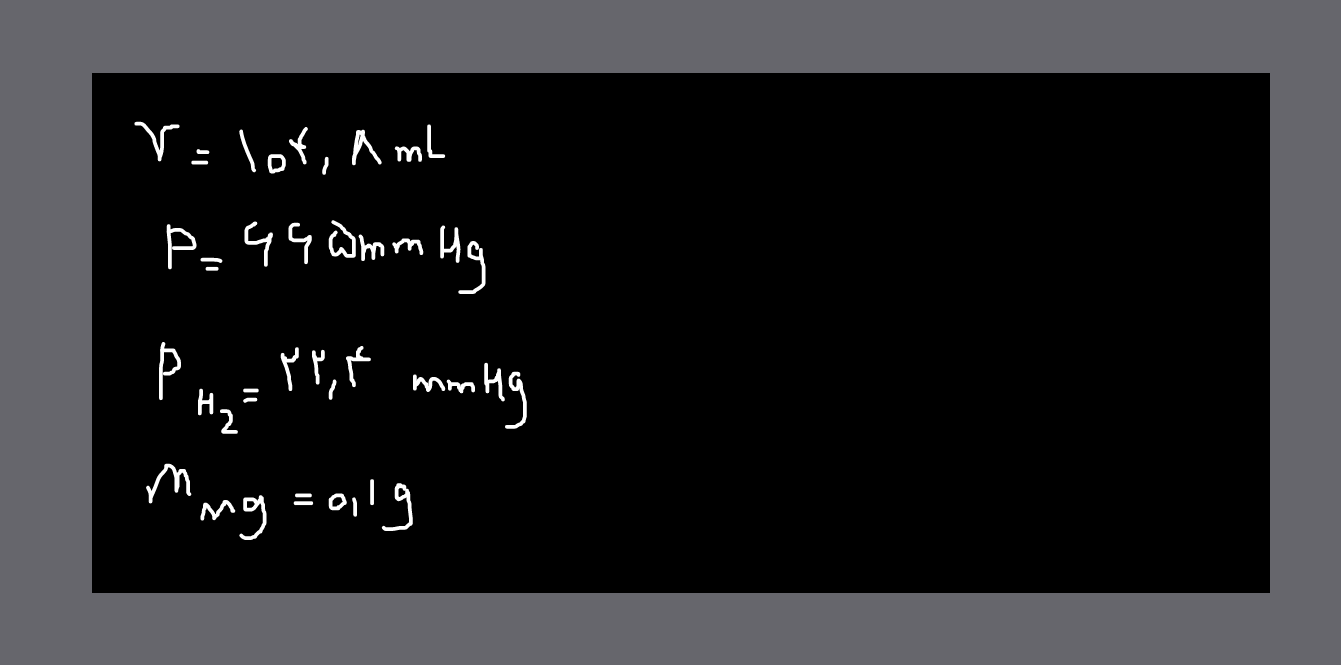 V = ۱۰۴,۸ mL
P = ۶۶۵ mmHg
P H₂ = ۲۲,۴ mmHg
m mg = ۰,۱ g